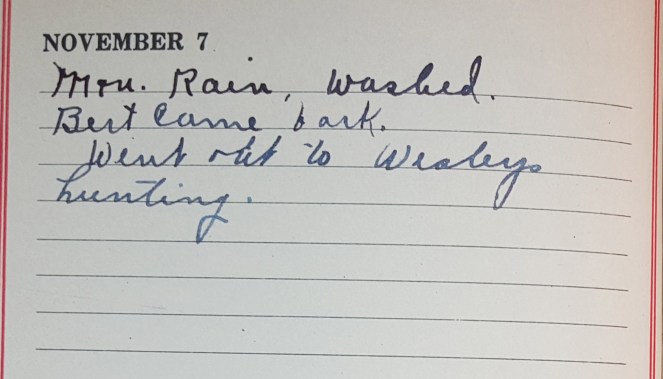 NOVEMBER 7
Mon. Rain, washed.
Bert came back.
Went out to Wesleys
hunting.